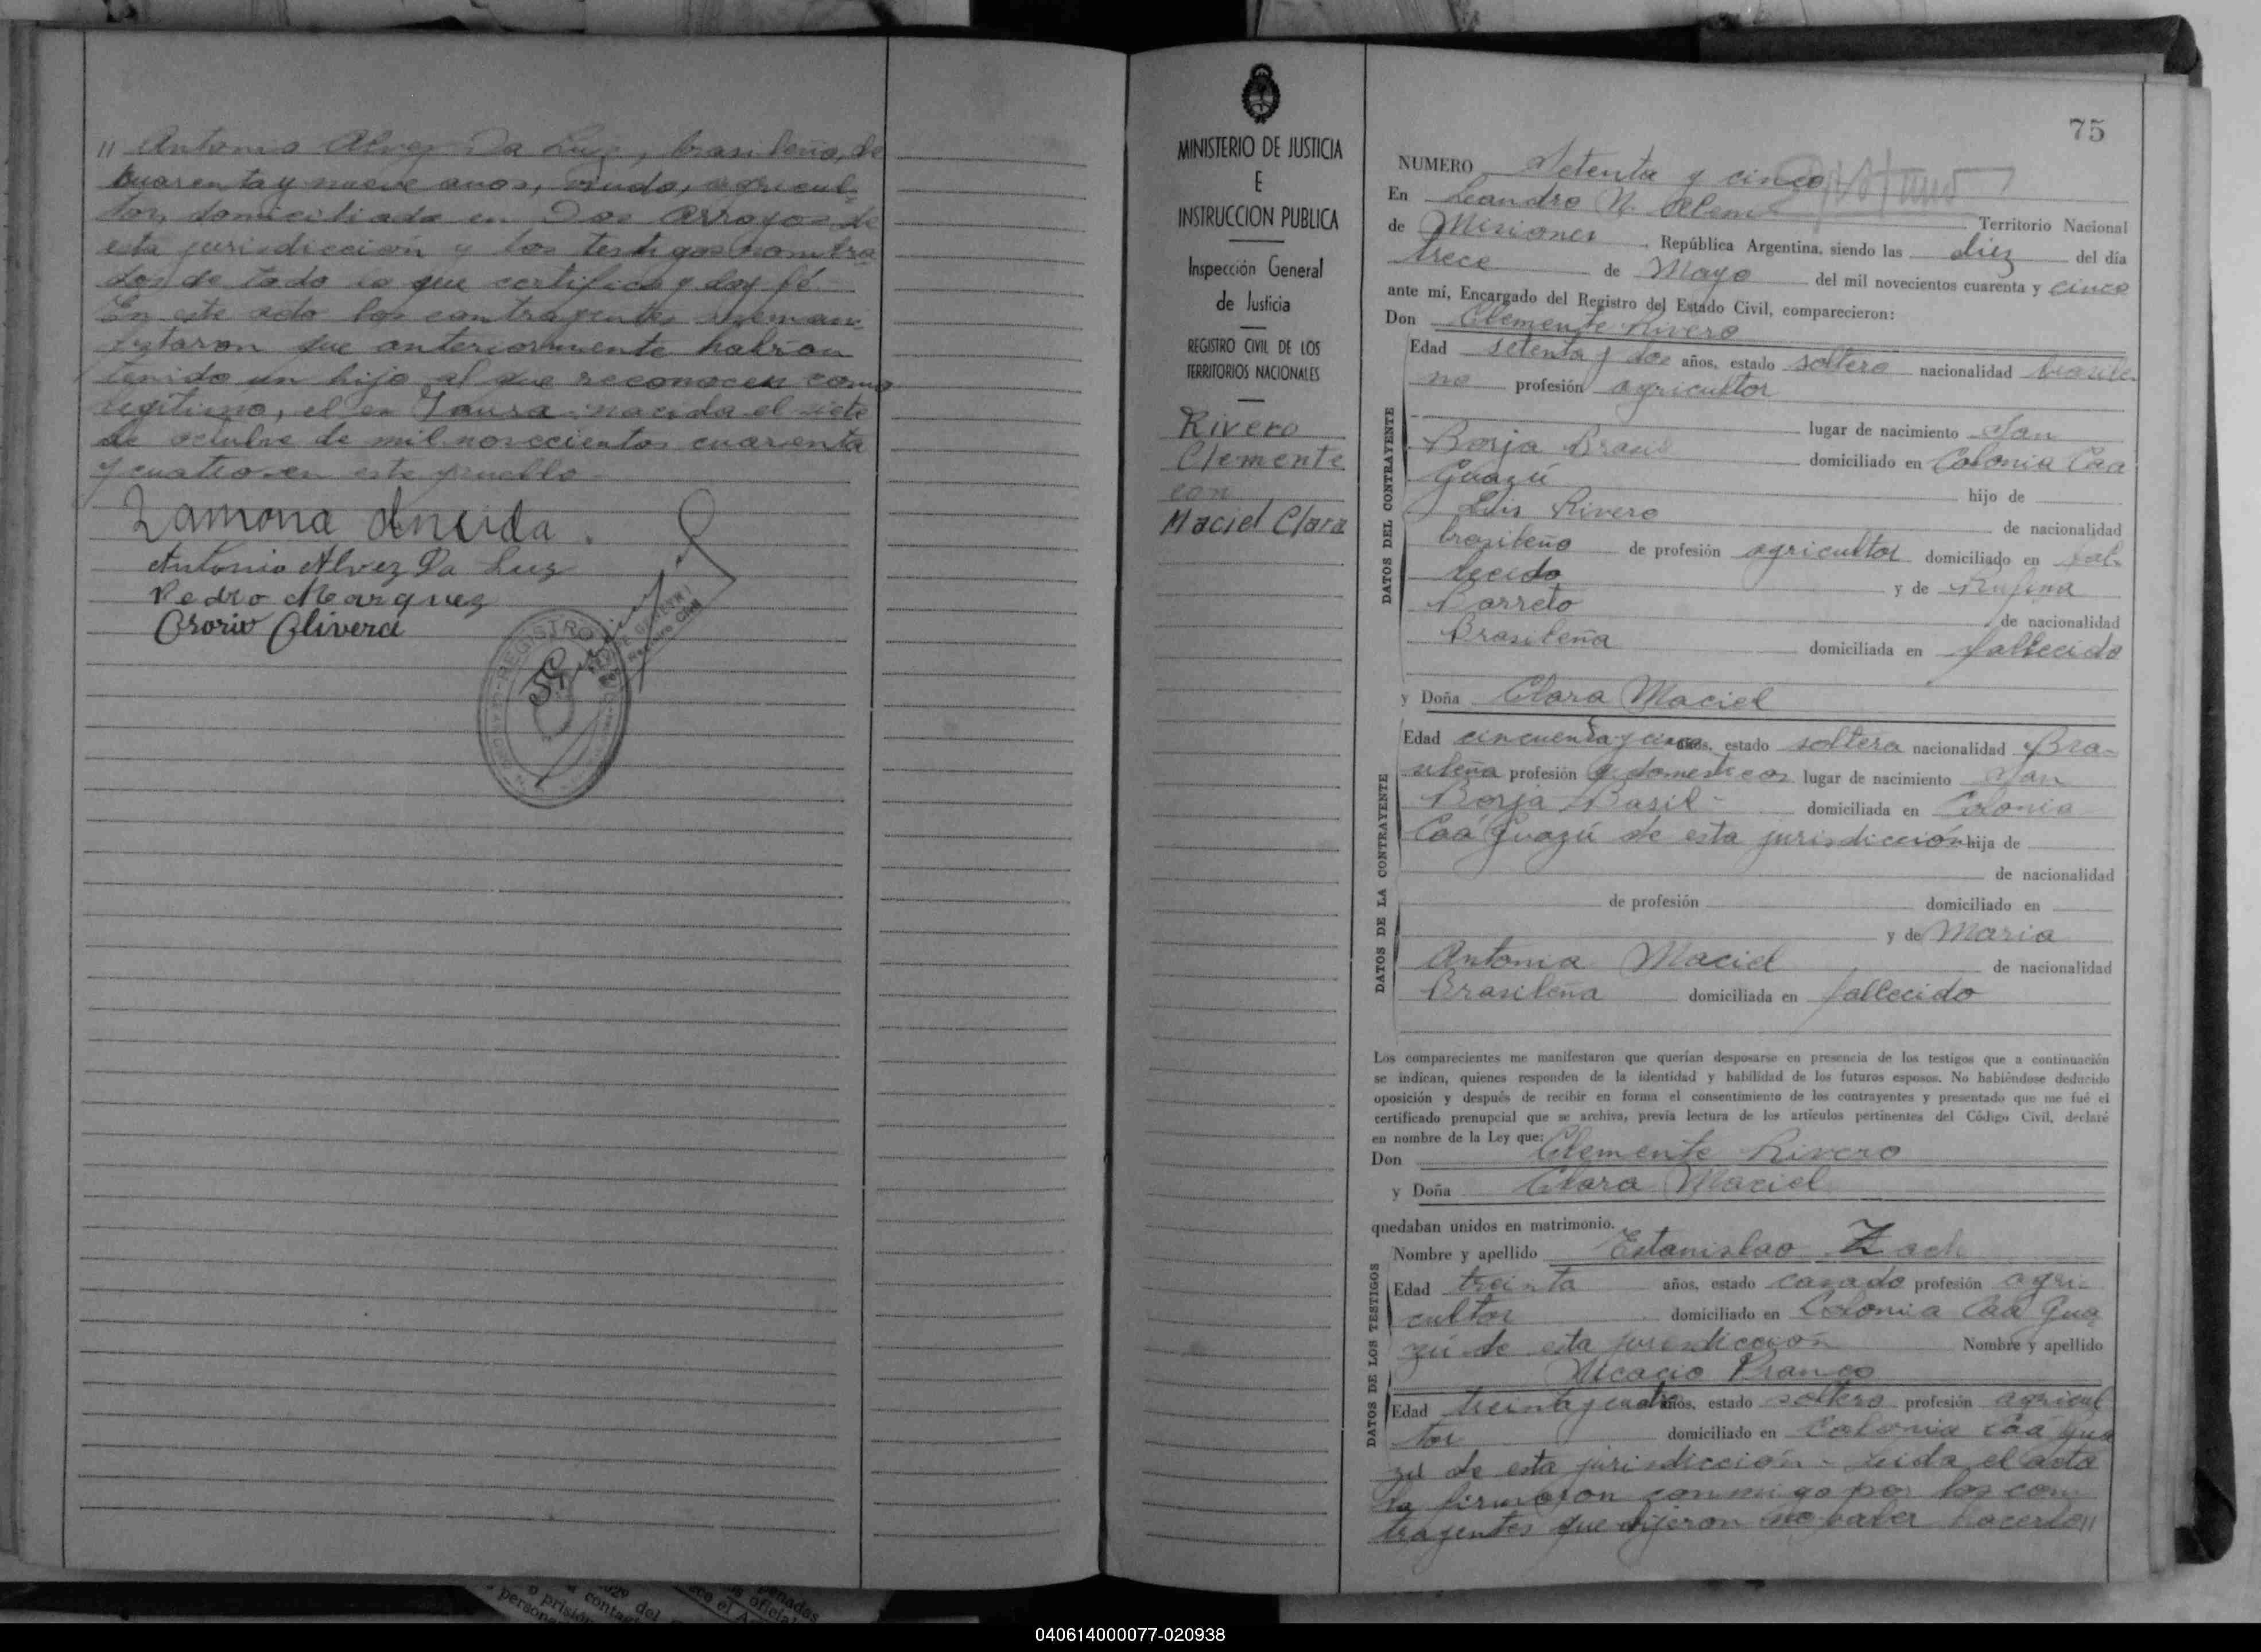 " Antonio Alvez Da Luz, brasileño, de
cuarenta y nueve años, viudo, agricul-
tor, domiciliado en Dos Arroyos de
esta jurisdicción y los testigos nombra-
dos de todo lo que certifico y doy fé.
En este acto los contrayentes maní-
festaron que anteriormente habían
tenido un hijo al que reconocen como
legítimo, el en nacida el siete
de octubre de mil novecientos cuarenta
y cuatro en este pueblo
Ramona Almeida.
Antonio Alvez Da Luz
Pedro Marquez
Osorio Olivera
REGISTRO
MINISTERIO DE JUSTICIA
E
INSTRUCCION PUBLICA
Inspección General
de Justicia
REGISTRO CIVIL DE LOS
TERRITORIOS NACIONALES
Rivero
Clemente
con
Maciel Clara
75
NUMERO Setenta y cinco
En Leandro N. Alem Territorio Nacional
de Misiones, República Argentina, siendo las diez del día
trece de Mayo del mil novecientos cuarenta y cinco
ante mí, Encargado del Registro del Estado Civil, comparecieron:
Don Clemente Rivero
DATOS DEL CONTRAYENTE
Edad setenta y dos años, estado soltero nacionalidad brasile-
ño profesión agricultor
lugar de nacimiento San
Borja Brasil domiciliado en Colonia Caa
Guazú hijo de
Luis Rivero de nacionalidad
brasileño de profesión agricultor domiciliado en fal-
lecido y de Rufina
Barreto de nacionalidad
Brasileña domiciliada en fallecido
y Doña Clara Maciel
DATOS DE LA CONTRAYENTE
Edad cincuenta y cinco años, estado soltera nacionalidad Bra-
sileña profesión q. domesticos lugar de nacimiento San
Borja Basil domiciliada en Colonia
Caá Guazú de esta jurisdicción hija de
de nacionalidad
de profesión domiciliado en
y de Maria
Antonia Maciel de nacionalidad
Brasileña domiciliada en fallecido
Los comparecientes me manifestaron que querían desposarse en presencia de los testigos que a continuación
se indican, quienes responden de la identidad y habilidad de los futuros esposos. No habiéndose deducido
oposición y después de recibir en forma el consentimiento de los contrayentes y presentado que me fué el
certificado prenupcial que se archiva, previa lectura de los artículos pertinentes del Código Civil, declaré
en nombre de la Ley que:
Don Clemente Rivero
y Doña Clara Maciel
quedaban unidos en matrimonio.
DATOS DE LOS TESTIGOS
Nombre y apellido Estanislao Zach
Edad treinta años, estado casado profesión agri-
cultor domiciliado en Colonia Caá Gua
zú de esta jurisdicción Nombre y apellido
Acacio Franco
Edad treinta y cuatro años, estado soltero profesión agricul
tor domiciliado en Colonia Caá Gua
zú de esta jurisdicción - Leida el acta
la firmaron conmigo por los con
trayentes que dijeron no saber hacerlo "
040614000077-020938